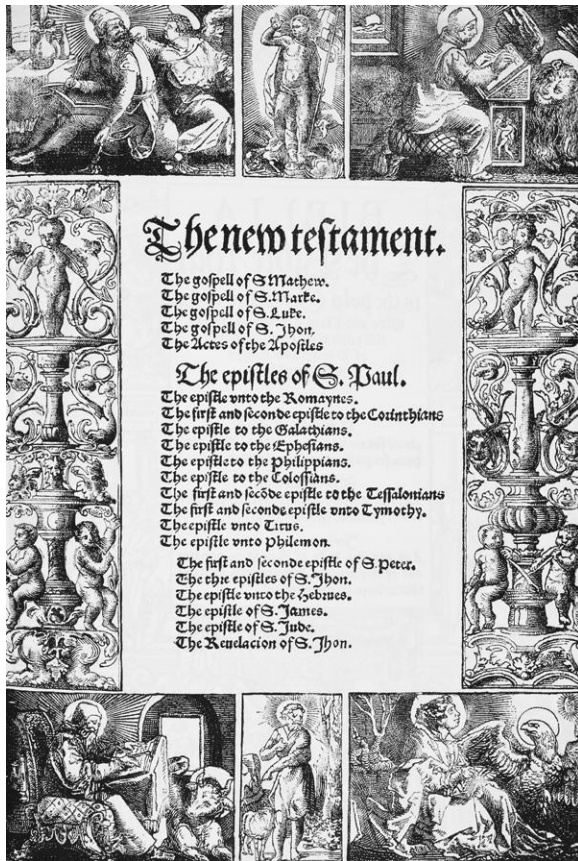 The new testament.
The gospell of S.Mathew.
The gospell of S.Marke.
The gospell of S.Luke.
The gospell of S.Jhon,
The Actes of the Apostles
The epistles of S. Paul.
The epistle vnto the Romaynes.
The first and seconde epistle to the Corinthians
The epistle to the Galathians.
The epistle to the Ephesians.
The epistle to the Philippians.
The epistle to the Colossians.
The first and secōde epistle to the Tessalonians
The first and seconde epistle vnto Tymothy.
The epistle vnto Titus.
The epistle vnto Philemon.
The first and seconde epistle of S.Peter.
The thre epistles of S.Jhon.
The epistle vnto the Hebrues.
The epistle of S.James.
The epistle of S.Jude.
The Reuelacion of S.Jhon.